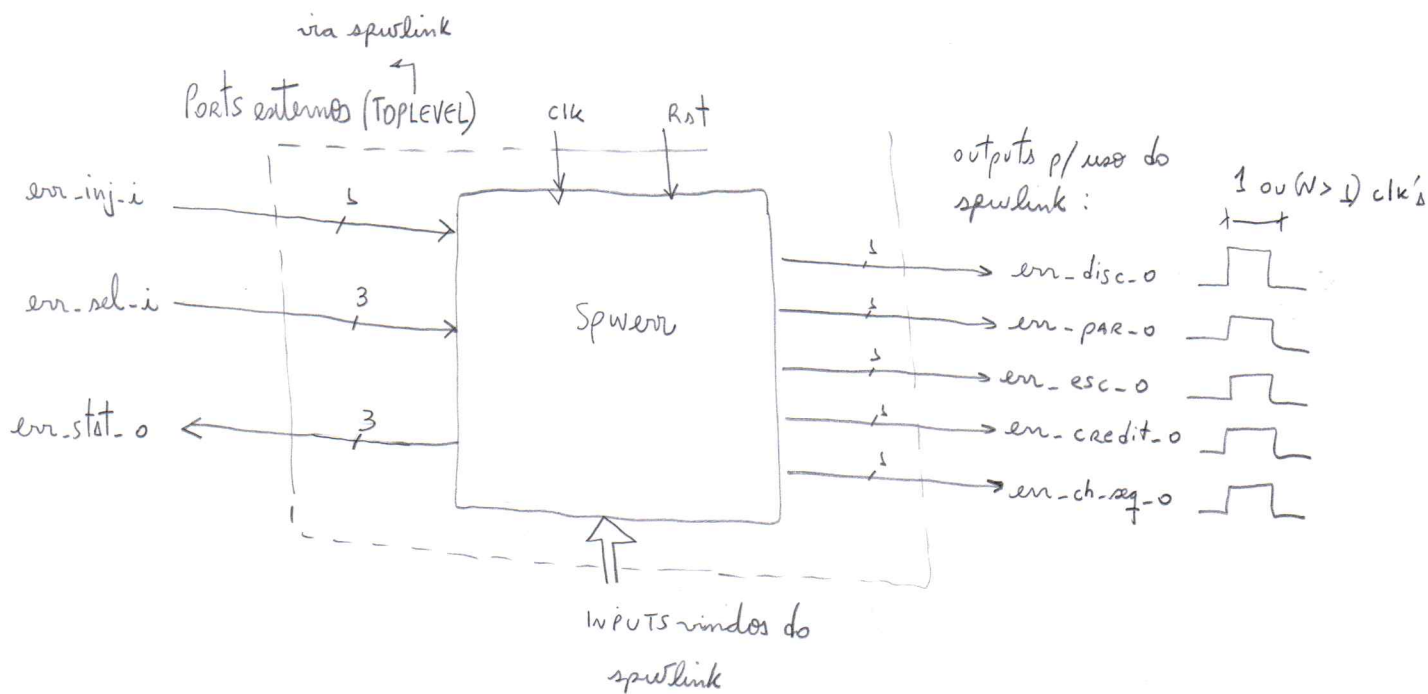 via spwlink
Ports externos (TOPLEVEL)
clk
Rst
err_inj_i
1
err_sel_i
3
err_stat_o
3
Spwerr
outputs p/ uso do
spwlink :
1 ou (N > 1) clk's
1
err_disc_o
1
err_PAR_o
1
err_esc_o
1
err_credit_o
1
err_ch_seq_o
INPUTS vindos do
spwlink